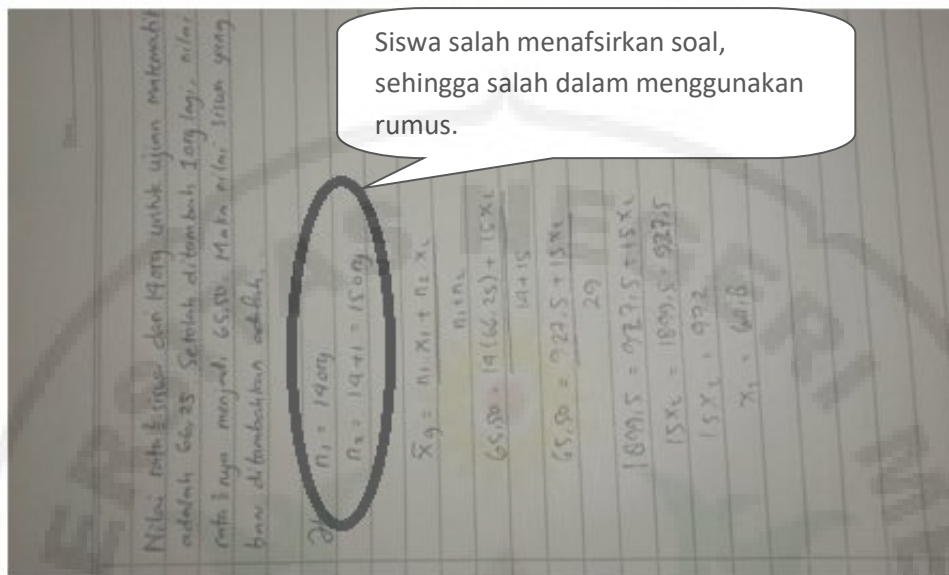 Siswa salah menafsirkan soal,
sehingga salah dalam menggunakan
rumus.
Nilai rata² siswa dari 14 org untuk ujian matematik
adalah 66,25 Setelah ditambah 1 org lagi, nilai
rata²nya menjadi 65,50. Maka nilai siswa yang
baru ditambahkan adalah.
n₁ = 14 org
n₂ = 14 + 1 = 15 org
x̄g = n₁ . x₁ + n₂ x₂
n₁ + n₂
65,50 = 14 (66.25) + 15 x₂
14 + 15
65,50 = 927.5 + 15 x₂
29
1899,5 = 927.5 + 15 x₂
15 x₂ = 1899,5 - 927.5
15 x₂ = 972